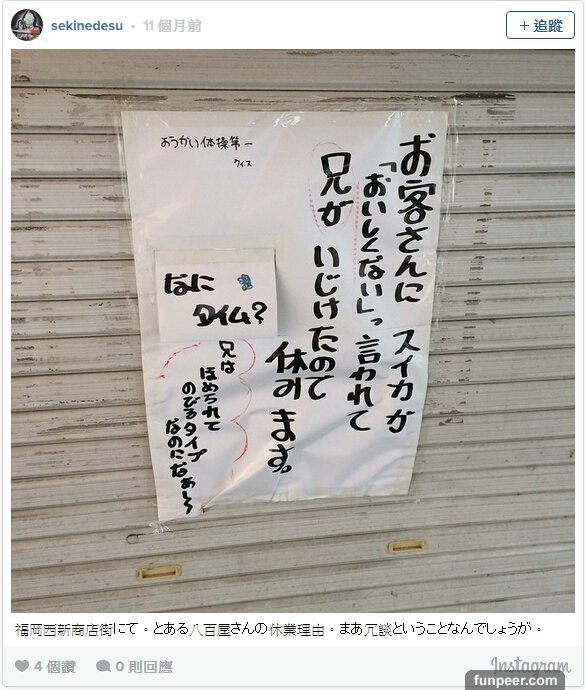 sekinedesu • 11 個月前
+ 追蹤
お客さんに スイカが
「おいしくない」って言われて
兄が いじけたので
休みます。
ようかい体操第一
クイズ
なに
タイム?
兄は
ほめられて
のびるタイプ
なのになぁ〜
福岡西新商店街にて。とある八百屋さんの休業理由。まあ冗談ということなんでしょうが。
4 個讚
0 則回應
Instagram
funpeer.com